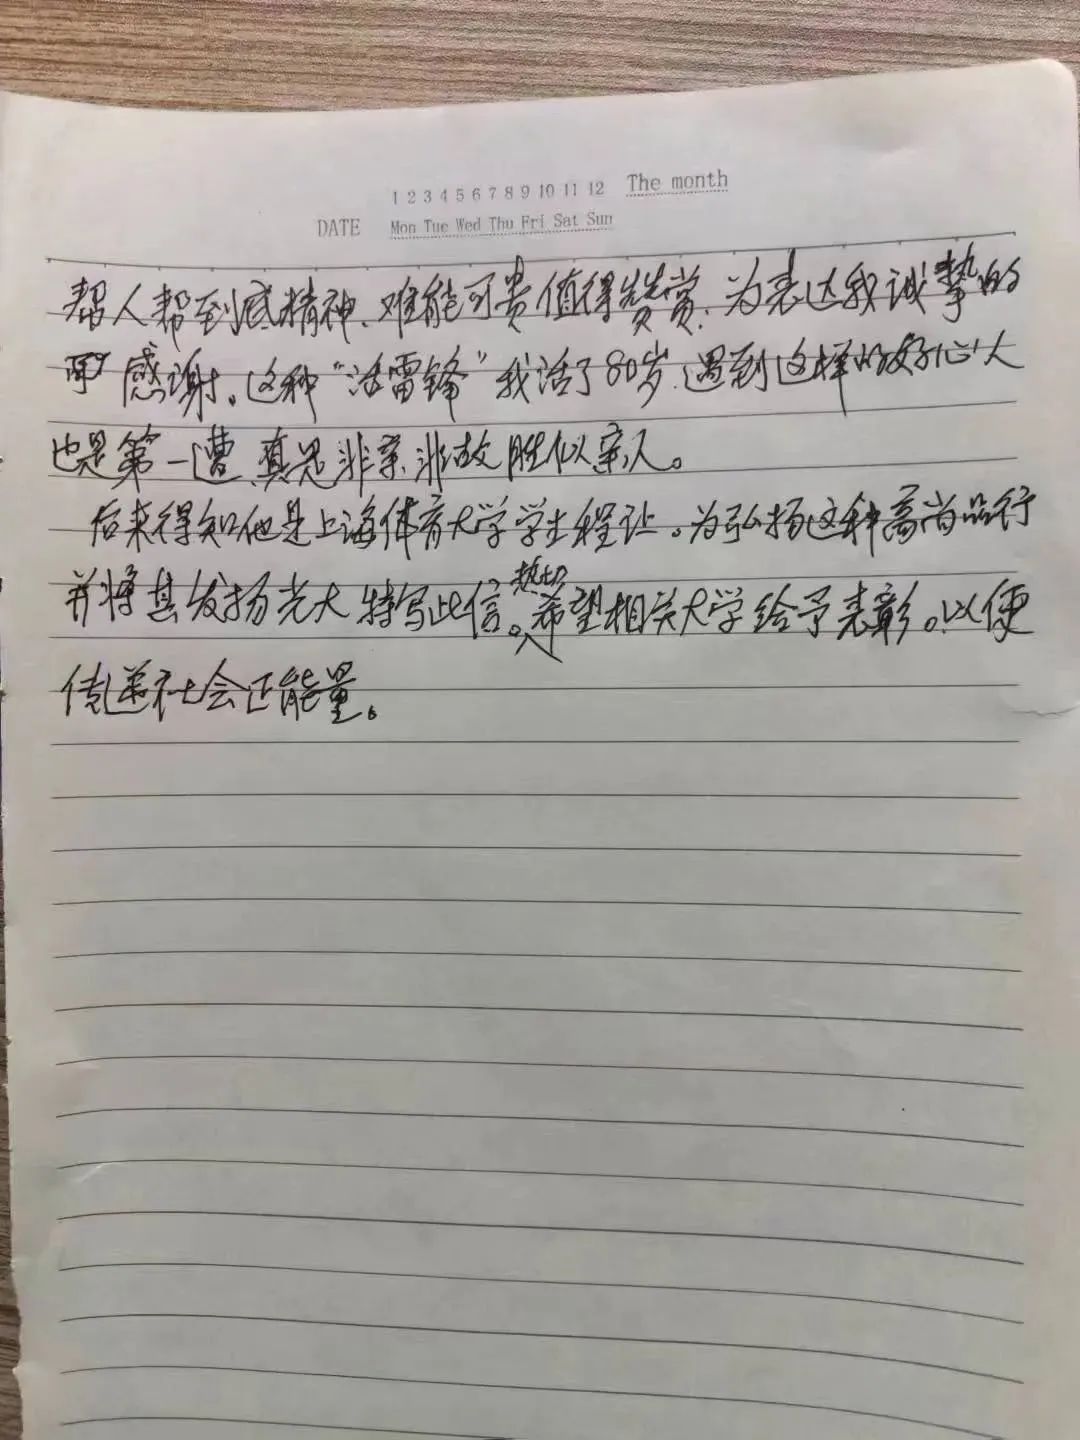 1 2 3 4 5 6 7 8 9 10 11 12 The month
DATE Mon Tue Wed Thu Fri Sat Sun
帮人帮到底精神、难能可贵值得赞赏、为表达我诚挚的
感谢。这种“活雷锋”我活了80岁、遇到这样的好心人
也是第一遭、真是非亲非故胜似亲人。
后来得知他是上海体育大学学生程让。为弘扬这种高尚品行
并将其发扬光大特写此信。热切希望相关大学给予表彰。以便
传递社会正能量。